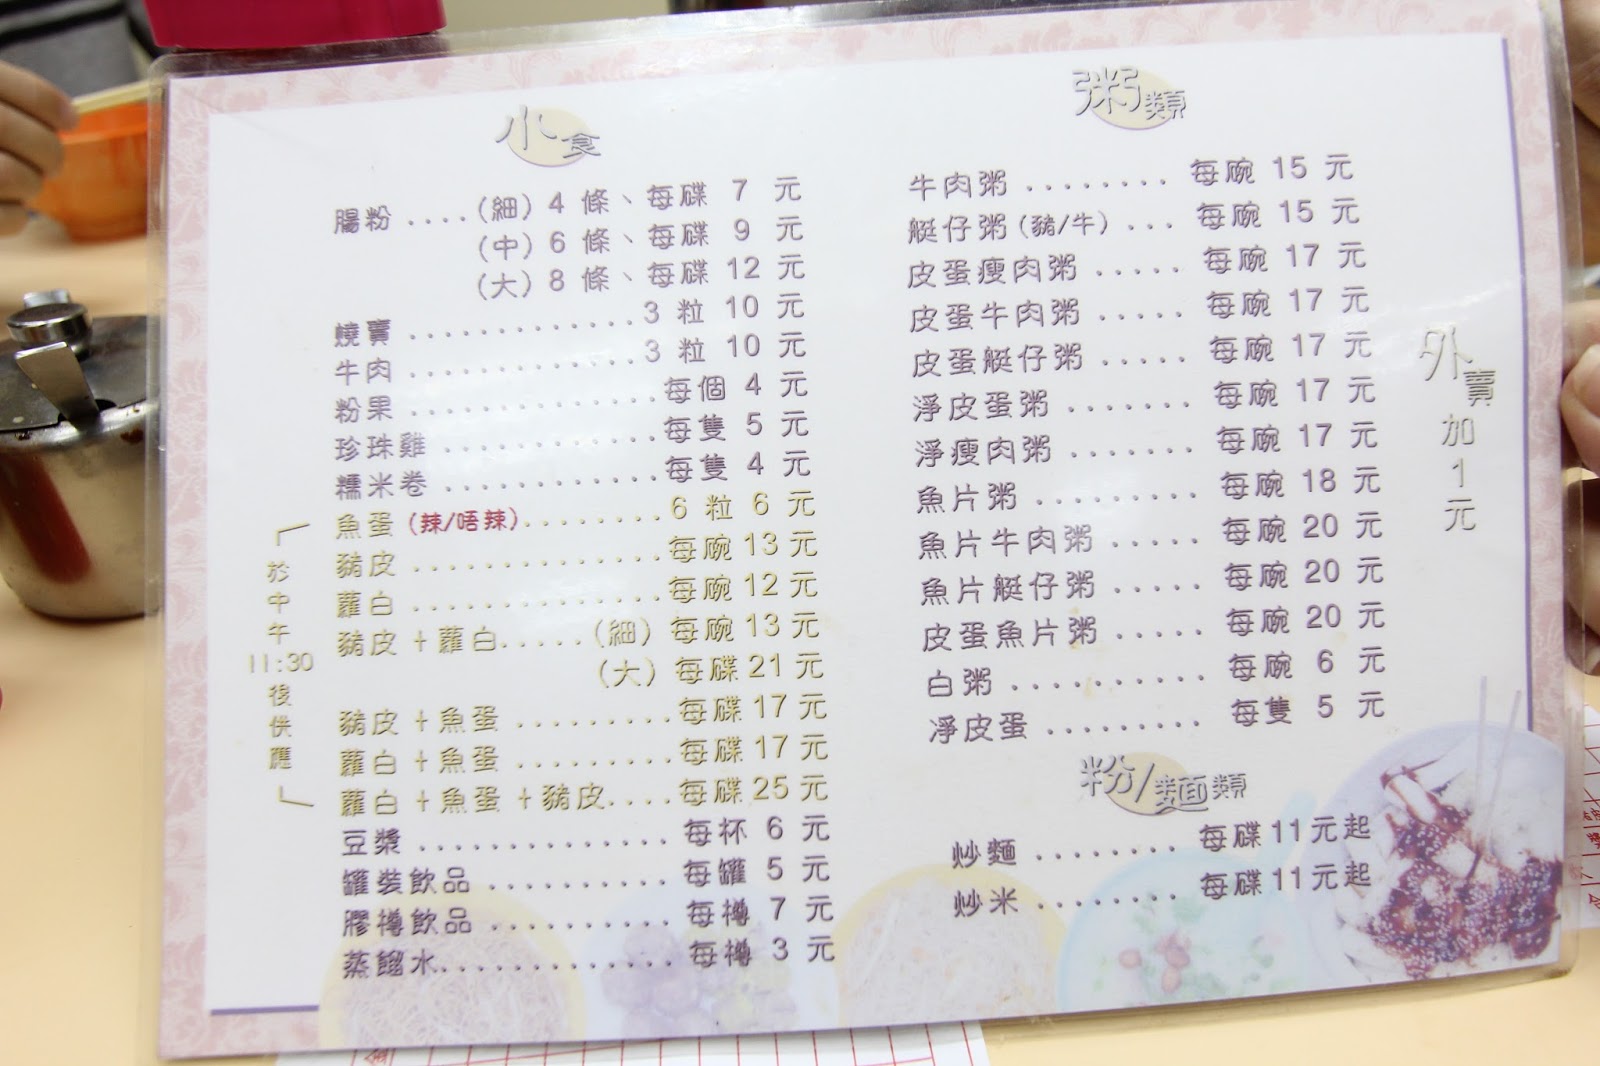 小食
腸粉....(細) 4 條、每碟 7 元
(中) 6 條、每碟 9 元
(大) 8 條、每碟 12 元
燒賣..............3 粒 10 元
牛肉..............3 粒 10 元
粉果...............每個 4 元
珍珠雞.............每隻 5 元
糯米卷............每隻 4 元
魚蛋(辣/唔辣)........6 粒 6 元
豬皮...............每碗 13 元
蘿白...............每碗 12 元
豬皮+蘿白.....(細) 每碗 13 元
(大) 每碟 21 元
豬皮+魚蛋.........每碟 17 元
蘿白+魚蛋.........每碟 17 元
蘿白+魚蛋+豬皮....每碟 25 元
於中午11:30後供應
豆漿...............每杯 6 元
罐裝飲品..........每罐 5 元
膠樽飲品..........每樽 7 元
蒸餾水.............每樽 3 元
粥類
牛肉粥........每碗 15 元
艇仔粥(豬/牛)...每碗 15 元
皮蛋瘦肉粥.....每碗 17 元
皮蛋牛肉粥.....每碗 17 元
皮蛋艇仔粥.....每碗 17 元
淨皮蛋粥.......每碗 17 元
淨瘦肉粥.......每碗 17 元
魚片粥.........每碗 18 元
魚片牛肉粥.....每碗 20 元
魚片艇仔粥.....每碗 20 元
皮蛋魚片粥.....每碗 20 元
白粥..........每碗 6 元
淨皮蛋.........每隻 5 元
粉/麵類
炒麵........每碟 11 元起
炒米........每碟 11 元起
外賣加1元